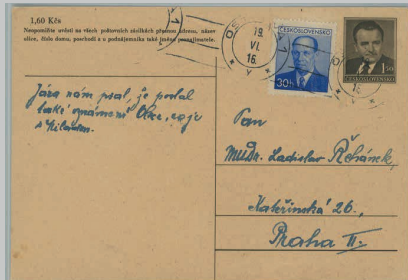 1,60 Kčs
Neopomiňte uvésti na všech poštovních zásilkách přesnou adresu, název
ulice, číslo domu, poschodí a u podnájemníka také jméno pronajímatele.
19.
VI.
16
ČESKOSLOVENSKO
30h
ČESKOSLOVENSKO
1 50
Jára nám psal, že poslal
také
s Miladou.
Pan
MUDr. Ladislav
Kateřinská 26.,
Praha II.